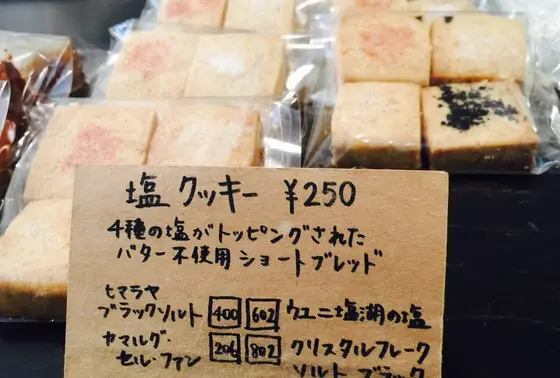 塩クッキー ¥250
4種の塩がトッピングされた
バター不使用ショートブレッド
ヒマラヤ
ブラックソルト 400 602 ウユニ塩湖の塩
カマルグ・
セル・ファン 206 802 クリスタルフレーク
ソルト ブラック